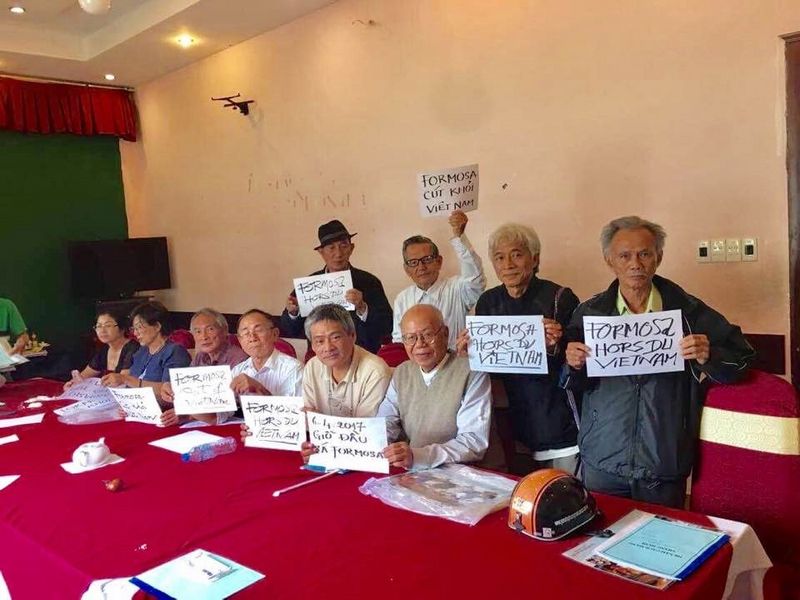 FORMOSA
CÚT KHỎI
VIỆT NAM
FORMOSA
HORS DU
FORMOSA
HORS DU
VIETNAM
FORMOSA
HORS DU
VIETNAM
FORMOSA
VIETNAM
FORMOSA
HORS DU
VIETNAM
6.4.2017
GIỖ ĐẦU
CÁ FORMOSA